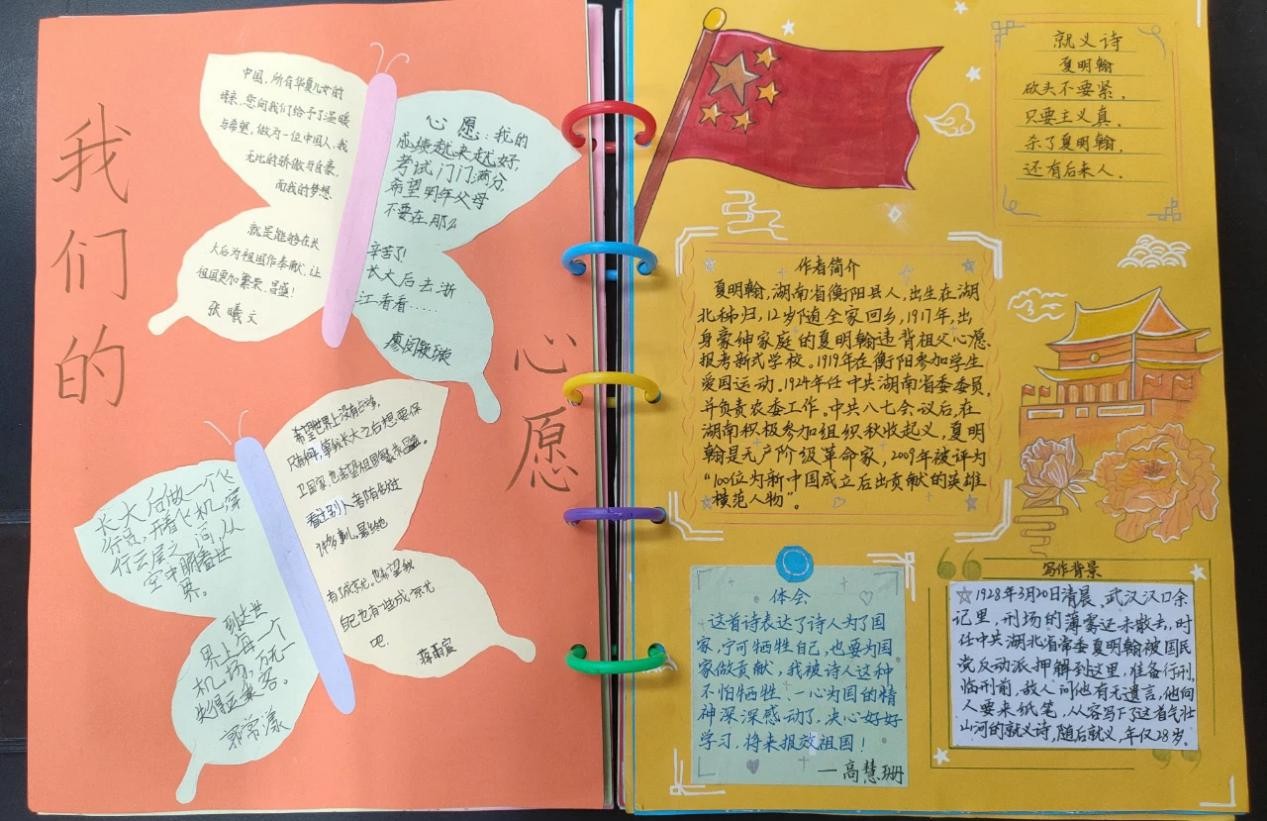 我们的
心愿
中国，所有华夏儿女的
母亲，您向我们给予了温暖
与希望，做为一位中国人，我
无比的骄傲与自豪，
而我的梦想
就是能够在长
大后为祖国作奉献，让
祖国更加繁荣、昌盛！
张曦文
心愿：我的
成绩越来越好，
考试门门满分，
希望明年父母
不要在那么
辛苦了！
长大后去浙
江看看……
长大后做一个飞
行员，开着飞机，穿
行云层之间，从
空中瞧着世
界。
到达世
界上每一个
机场，万无一
失得运乘客。
郭常漾
希望世界上没有占争，
只有和平，等我长大之后想要保
卫国家，也希望祖国繁荣昌盛。
看注别人
有了成就，也希望我
自己也有一些成就
吧
蒋雨宣
就义诗
夏明翰
砍头不要紧，
只要主义真。
杀了夏明翰，
还有后来人。
作者简介
夏明翰，湖南省衡阳县人，出生在湖
北秭归，12岁随全家回乡，1917年，出
身豪绅家庭的夏明翰违背祖父心愿，
报考新式学校。1919年在衡阳参加学生
爱国运动。1924年任中共湖南省委委员，
并负责农委工作。中共八七会议后，在
湖南积极参加组织秋收起义，夏明
翰是无产阶级革命家，2009年被评为
“100位为新中国成立后出贡献的英雄
模范人物”。
体会
这首诗表达了诗人为了国
家，宁可牺牲自己，也要为国
家做贡献，我被诗人这种
不怕牺牲、一心为国的精
神深深感动了，决心好好
学习，将来报效祖国！
—高慧珊
写作背景
1928年3月20日清晨，武汉汉口余
记里，刑场的薄雾还未散去，时
任中共湖北省常委夏明翰被国民
党反动派押解到这里，准备行刑，
临刑前，敌人问他有无遗言，他向
人要来纸笔，从容写下了这首气壮
山河的就义诗，随后就义，年仅28岁。